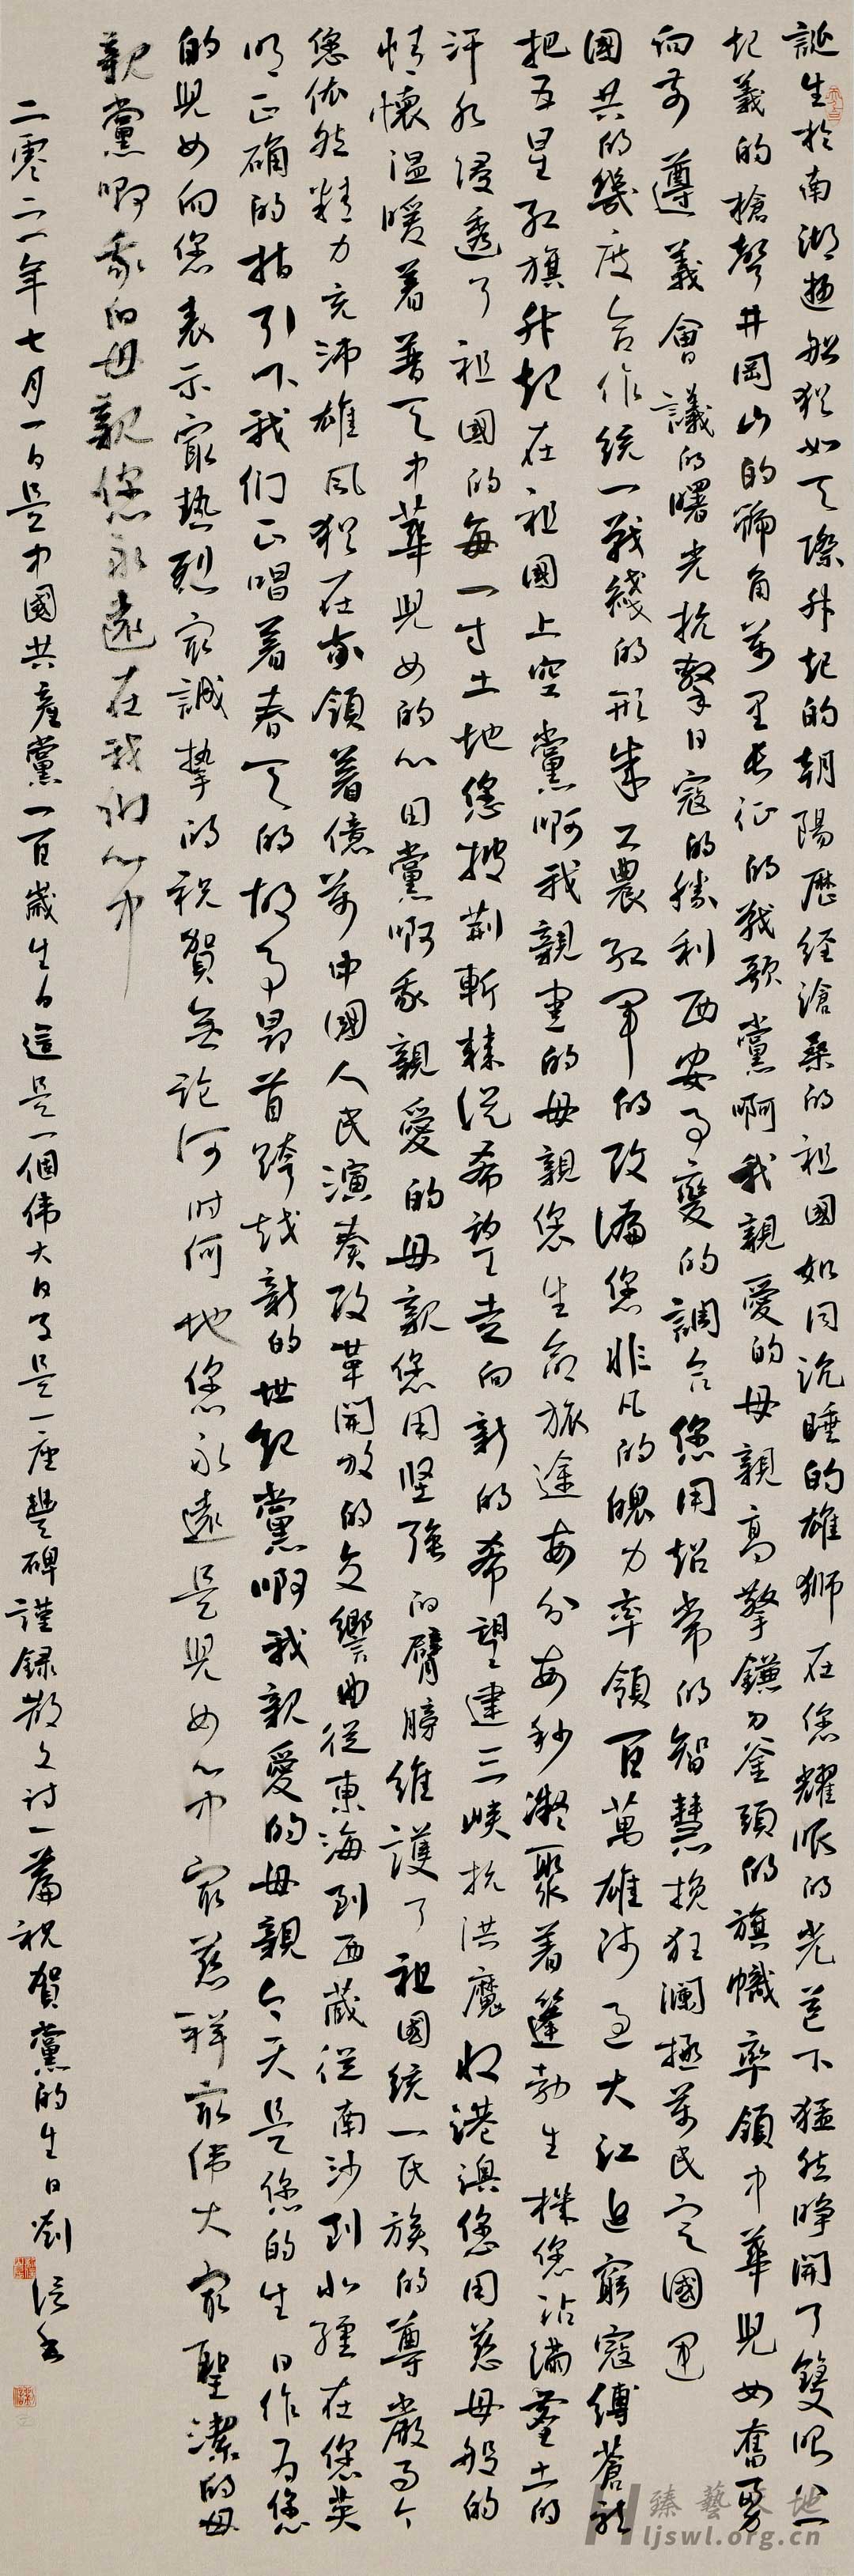 誕生於南湖遊船猶如天際升起的朝陽歷經滄桑的祖國如同沉睡的雄獅在您耀眼的光芒下猛然睜開了雙眼八一
起義的槍聲井岡山的號角萬里長征的戰歌黨啊我親愛的母親高擎鐮刀釜頭的旗幟率領中華兒女奮勇
向前遵義會議的曙光抗擊日寇的勝利西安事變的調合您用超常的智慧挽狂瀾拯萬民定國運
國共的幾度合作統一戰綫的形成工農紅軍的改編您非凡的魄力率領百萬雄師過大江追窮寇縛蒼龍
把五星紅旗升起在祖國上空黨啊我親愛的母親您生命旅途每分每秒凝聚着蓬勃生機您沾滿塵土的
汗水浸透了祖國的每一寸土地您披荊斬棘從希望走向新的希望建三峽抗洪魔收港澳您用慈母般的
情懷溫暖着普天中華兒女的心田黨啊我親愛的母親您用堅強的臂膀維護了祖國統一民族的尊嚴而今
您依然精力充沛雄風猶在率領着億萬中國人民演奏改革開放的交響曲從東海到西藏從南沙到北疆在您英
明正確的指引下我们正唱着春天的故事昂首跨越新的世紀黨啊我親愛的母親今天是您的生日作为您
的兒女向您表示最熱烈最誠摯的祝賀無論何时何地您永遠是兒女心中最慈祥最偉大最聖潔的母
親黨啊我的母親您永遠在我们心中
二零二一年七月一日是中國共產黨一百歲生日這是一個偉大日子是一座豐碑謹録散文詩一篇祝賀黨的生日劉
臻藝天地
ljswl.org.cn